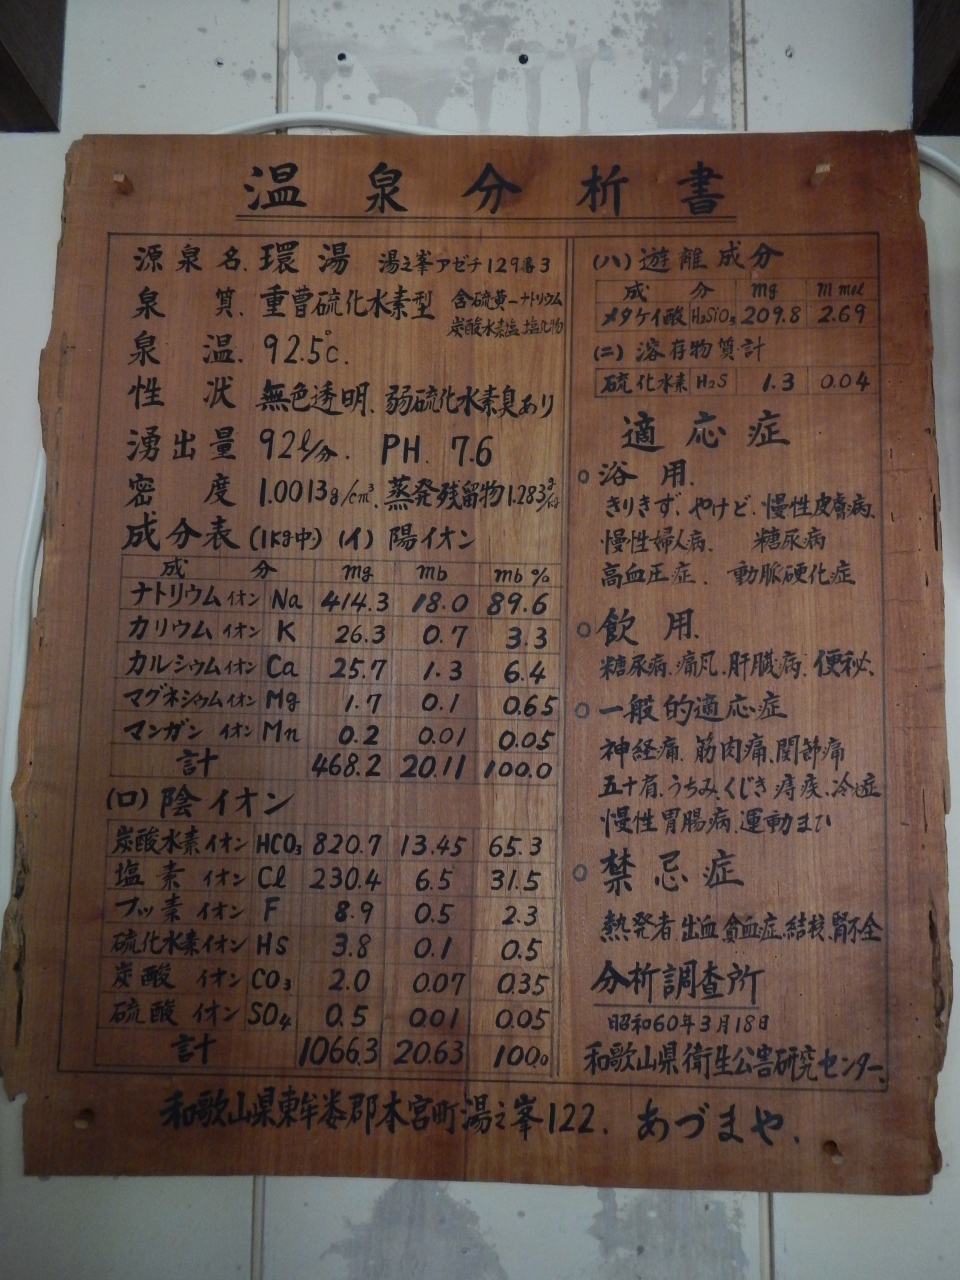 温泉分析書
源泉名. 環湯 湯之峯アゼチ129番3
泉質. 重曹硫化水素型 含硫黄-ナトリウム
炭酸水素塩.塩化物
泉温. 92.5℃.
性状 無色透明、弱硫化水素臭あり
湧出量 92ℓ/分. PH. 7.6
密度 1.0013g/cm³、蒸発残留物1.283g/kg
成分表(1kg中) (イ) 陽イオン
成分 mg mb mb%
ナトリウムイオン Na 414.3 18.0 89.6
カリウムイオン K 26.3 0.7 3.3
カルシウムイオン Ca 25.7 1.3 6.4
マグネシウムイオン Mg 1.7 0.1 0.65
マンガンイオン Mn 0.2 0.01 0.05
計 468.2 20.11 100.0
(ロ) 陰イオン
炭酸水素イオン HCO₃ 820.7 13.45 65.3
塩素イオン Cl 230.4 6.5 31.5
フッ素イオン F 8.9 0.5 2.3
硫化水素イオン HS 3.8 0.1 0.5
炭酸イオン CO₃ 2.0 0.07 0.35
硫酸イオン SO₄ 0.5 0.01 0.05
計 1066.3 20.63 100.0
(ハ) 遊離成分
成分 mg m mol
メタケイ酸 H₂SiO₃ 209.8 2.69
(ニ) 溶存物質計
硫化水素 H₂S 1.3 0.04
適応症
○浴用.
きりきず、やけど、慢性皮膚病、
慢性婦人病、糖尿病
高血圧症、動脈硬化症
○飲用.
糖尿病、痛風、肝臓病、便秘、
○一般的適応症
神経痛、筋肉痛、関節痛
五十肩、うちみ、くじき、痔疾、冷え症
慢性胃腸病、運動まひ
○禁忌症
熱発者、出血、貧血症、結核、腎不全
分析調査所
昭和60年3月18日
和歌山県衛生公害研究センター、
和歌山県東牟婁郡本宮町湯之峯122. あづまや.